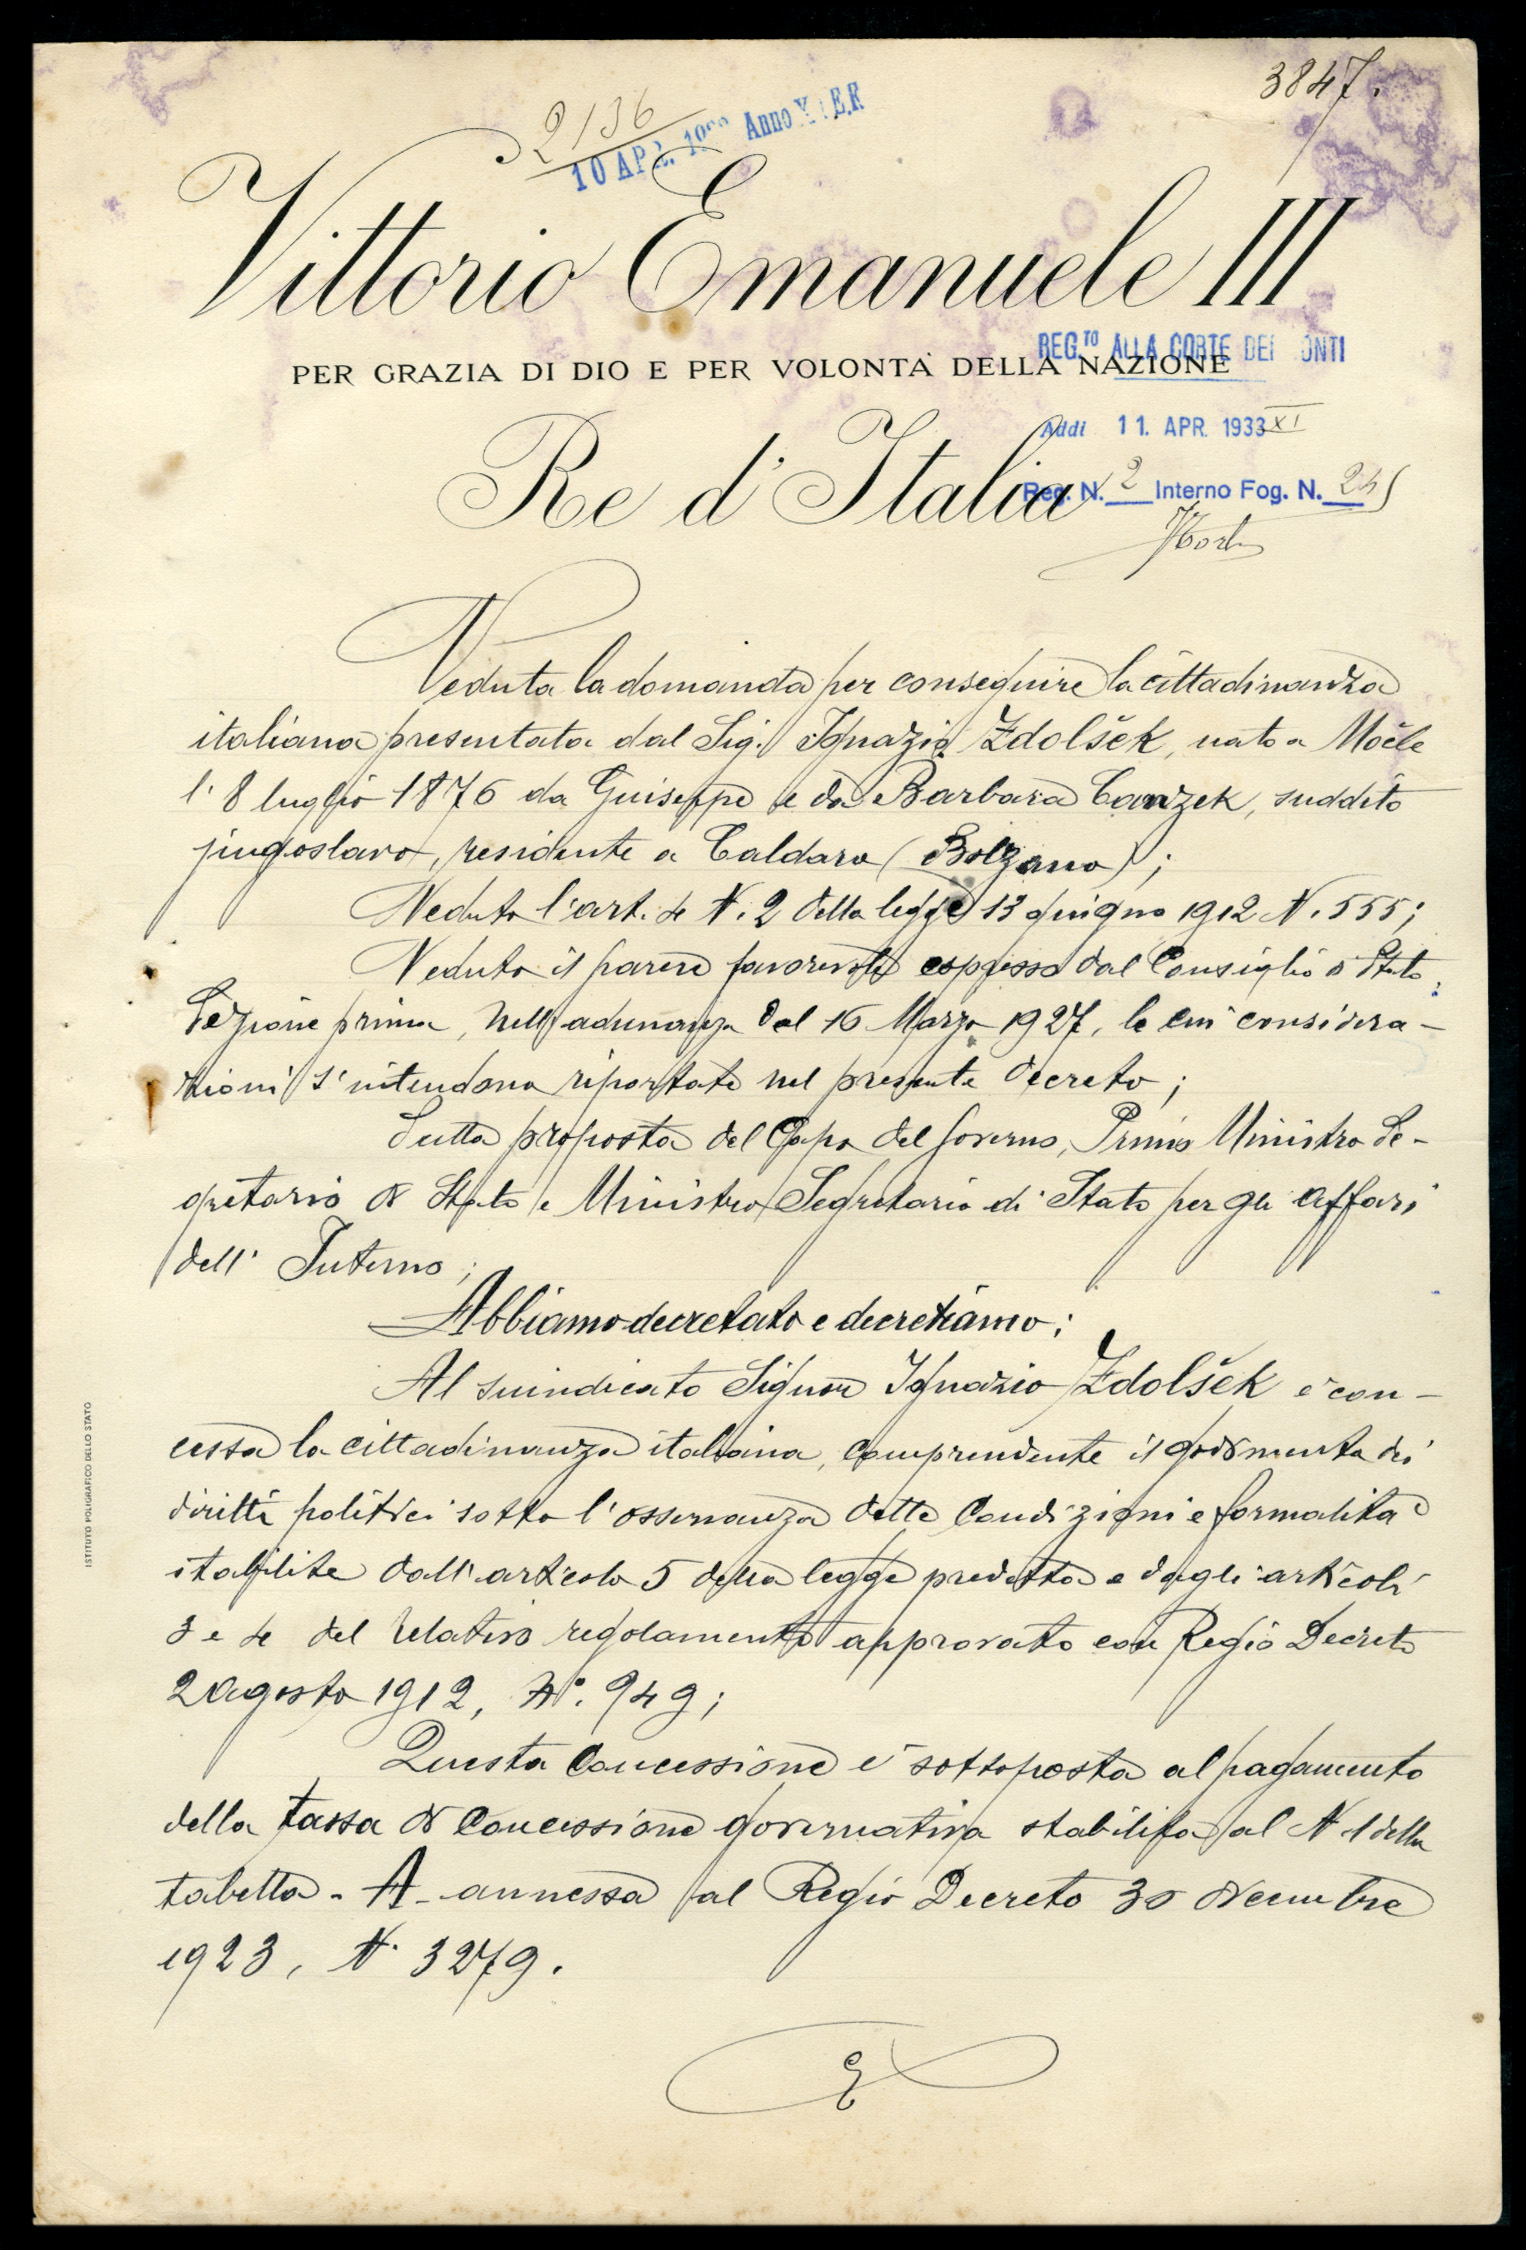 3847.
2136
10 APR. 19 Anno X E.F.
Vittorio Emanuele III
REG.TO ALLA CORTE DEI CONTI
PER GRAZIA DI DIO E PER VOLONTÀ DELLA NAZIONE
Addì 11. APR. 1933 XI
Re d'Italia
Reg. N. 2 Interno Fog. N.
Veduta la domanda per conseguire la cittadinanza
italiana presentata dal Sig. Ignazio Zdolšek, nato a Močle
l'8 luglio 1876 da Guiseppe e da Barbara Canzek, suddito
jugoslavo, residente a Caldaro (Bolzano);
Veduto l'art. 4 N. 2 della legge 13 giugno 1912 N. 555;
Veduto il parere favorevole espresso dal Consiglio di Stato,
Sezione prima, nell'adunanza del 16 Marzo 1927, le cui considera-
zioni s'intendono riportate nel presente decreto;
Sulla proposta del Capo del Governo, Primo Ministro Se-
gretario di Stato e Ministro Segretario di Stato per gli affari
dell'Interno;
Abbiamo decretato e decretiamo:
Al suindicato Signor Ignazio Zdolšek è con-
cessa la cittadinanza italiana, comprendente il godimento dei
diritti politici sotto l'osservanza delle Condizioni e formalità
stabilite dall'articolo 5 della legge predetta e dagli articoli
3 e 4 del relativo regolamento approvato con Regio Decreto
2 agosto 1912, N°. 949;
Questa Concessione è sottoposta al pagamento
della tassa di Concessione governativa stabilita al N. 1 della
tabella - A - annessa al Regio Decreto 30 dicembre
1923, N. 3279.
ISTITUTO POLIGRAFICO DELLO STATO